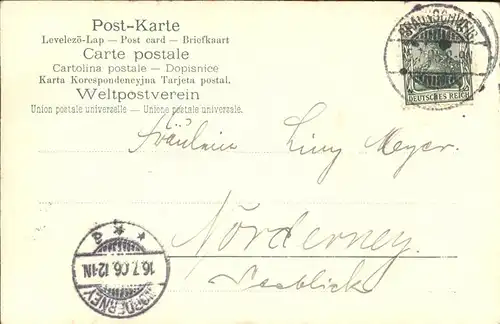 Post-Karte
Levelező-Lap — Post card — Briefkaart
Carte postale
Cartolina postale — Dopisnice
Karta Korespondencyjna Tarjeta postal.
Weltpostverein
Union postale universelle — Unione postale universale.
BRAUNSCHWEIG
DEUTSCHES REICH
Fräulein Liny Meyer.
Norderney
Seeblick
* * a
16.7.06.12-1N
NORDERNEY